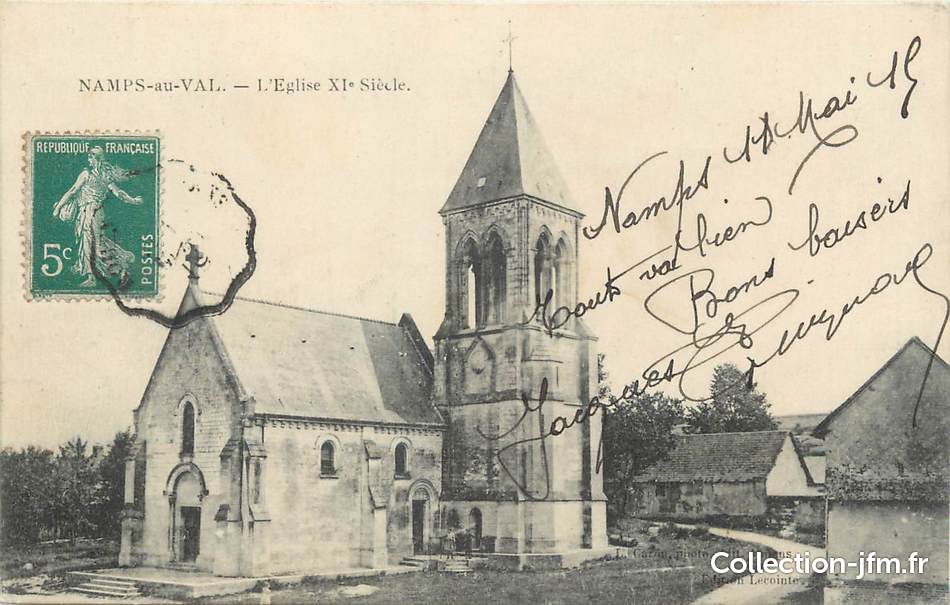 NAMPS-au-VAL. — L'Eglise XIe Siècle.
REPUBLIQUE FRANÇAISE
5c
POSTES
Namps 11 Mai 15
Tout va bien
Bons baisers
Jacques
L. Caron, photo
Edition Lecointe
Collection-jfm.fr